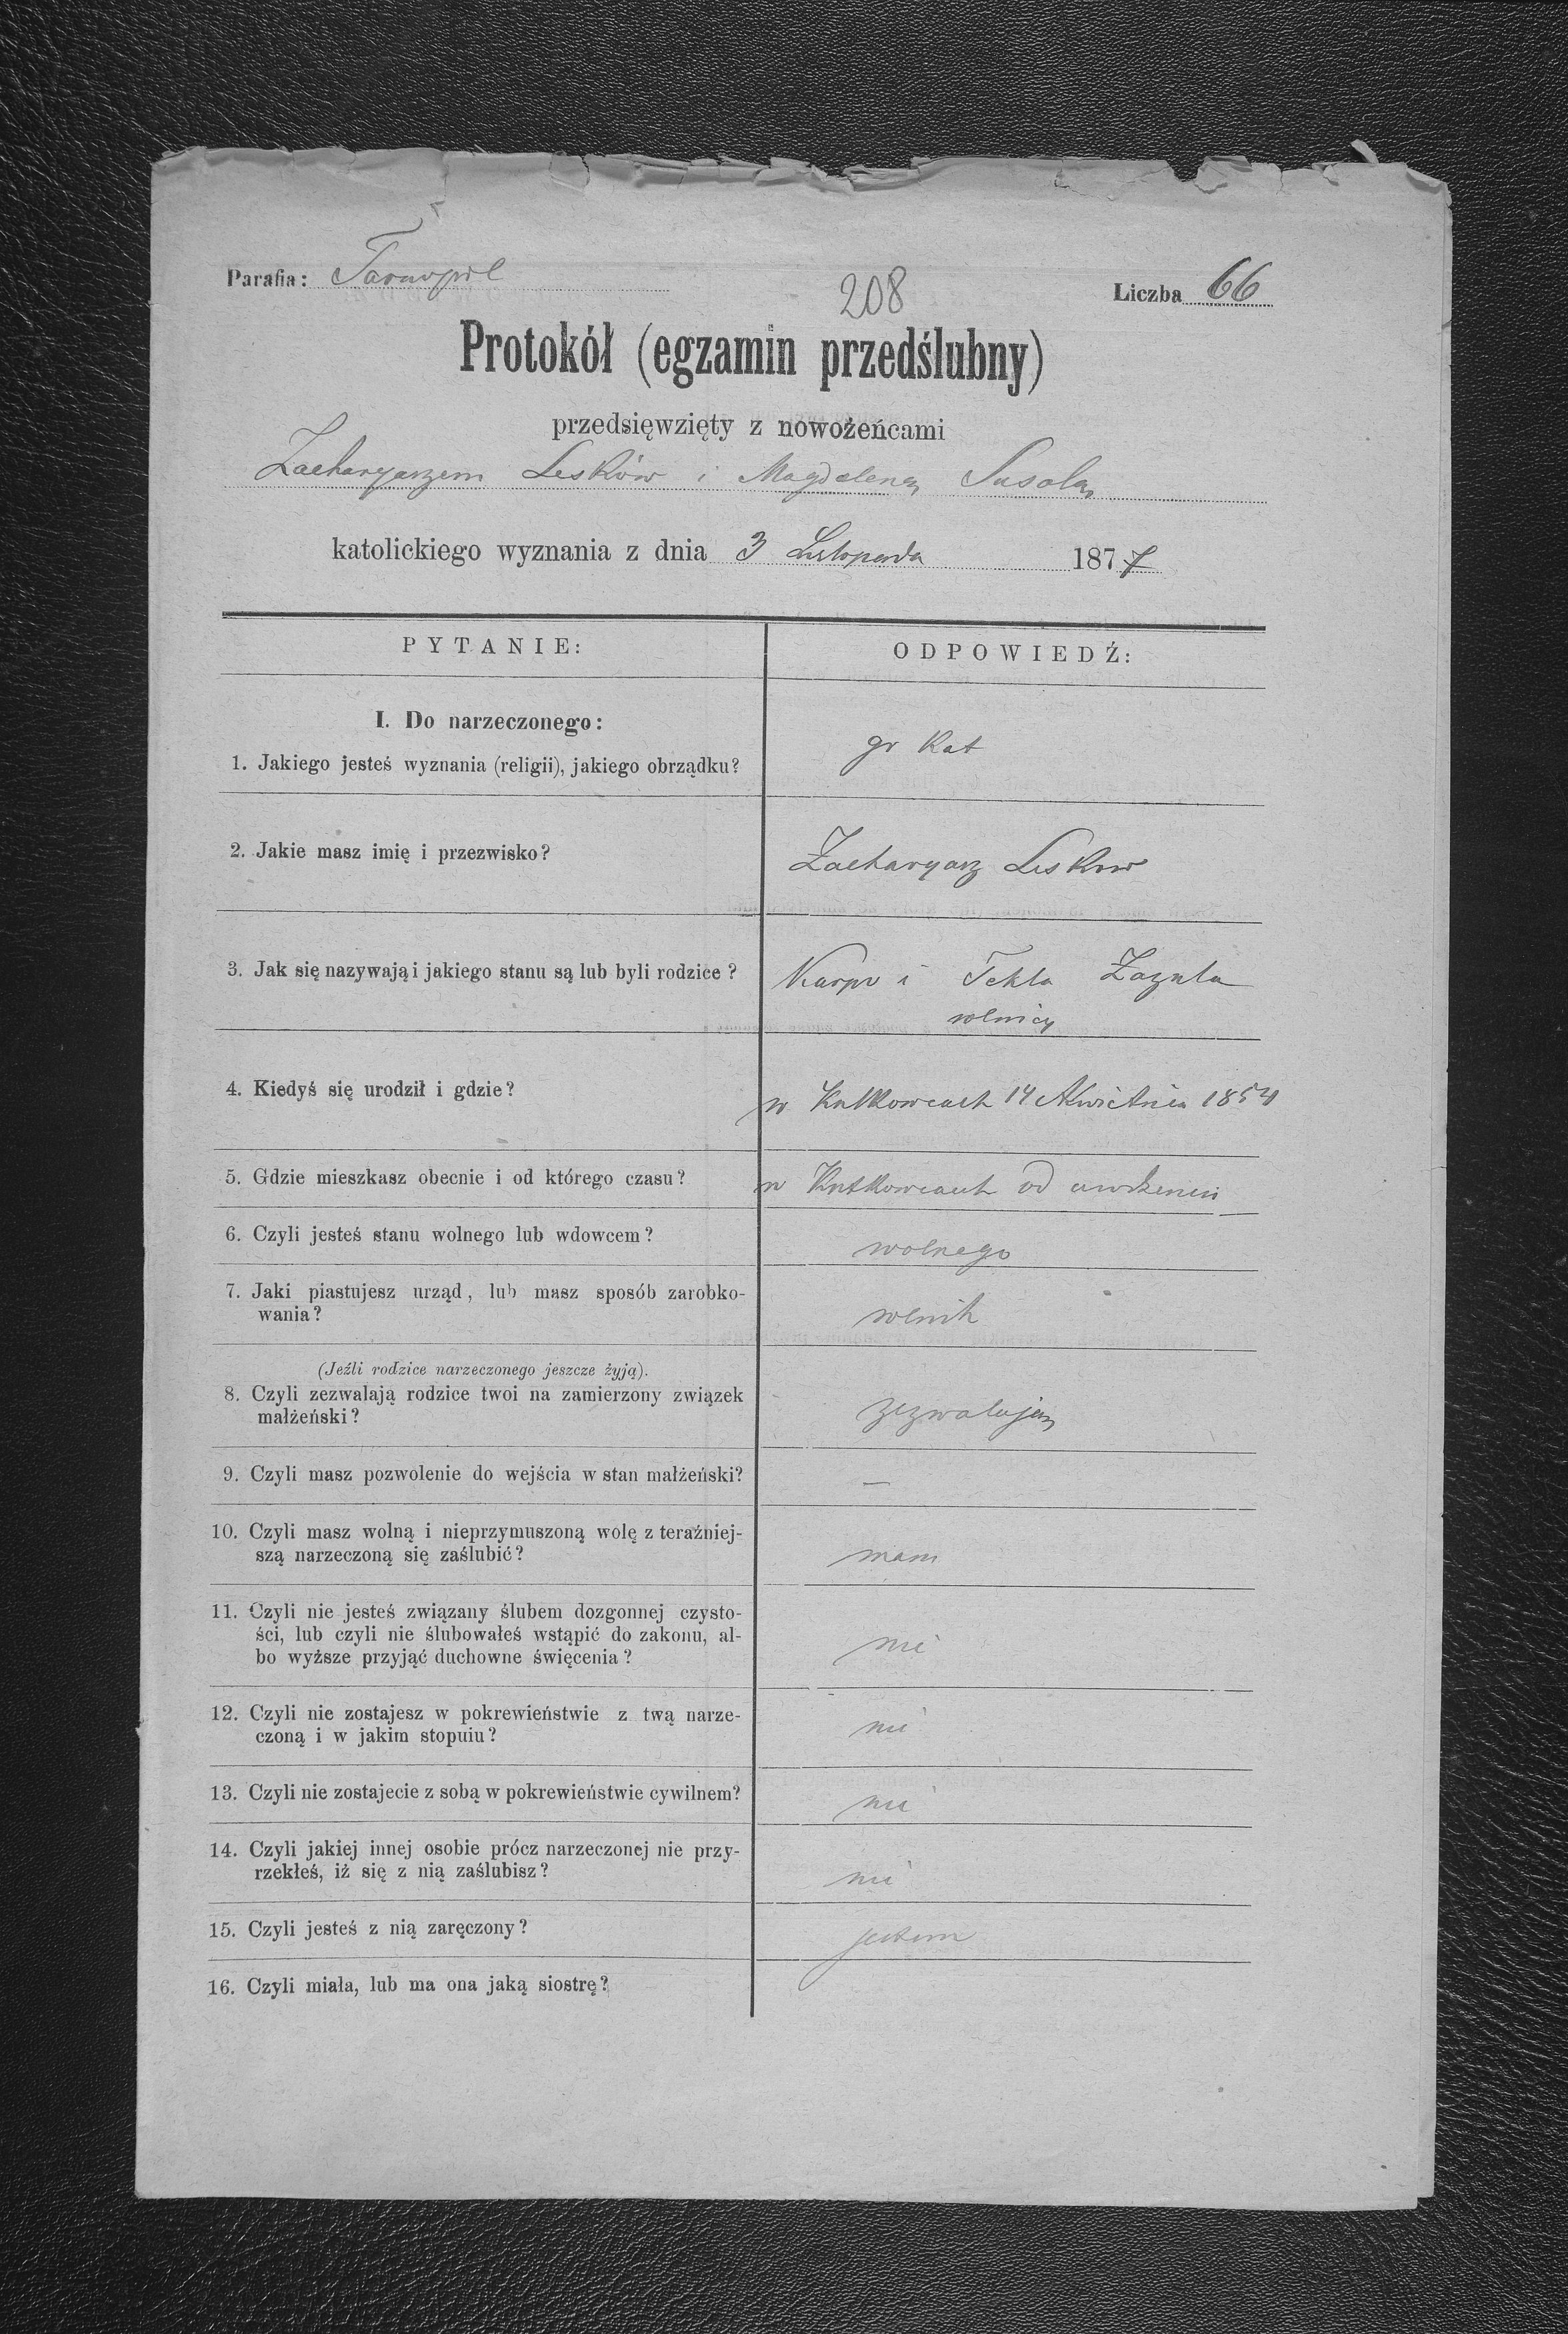 Parafia: Tarnopol
208
Liczba 66
Protokół (egzamin przedślubny)
przedsięwzięty z nowożeńcami
Zacharyaszem Lesków i Magdaleną Susolą
katolickiego wyznania z dnia 3 Listopada 1877
PYTANIE:
ODPOWIEDŹ:
I. Do narzeczonego:
1. Jakiego jesteś wyznania (religii), jakiego obrządku?
gr kat
2. Jakie masz imię i przezwisko?
Zacharyasz Leskow
3. Jak się nazywają i jakiego stanu są lub byli rodzice?
Karpo i Tekla Zazula
rolnicy
4. Kiedyś się urodził i gdzie?
w Kutkowcach 14 Kwietnia 1854
5. Gdzie mieszkasz obecnie i od którego czasu?
w Kutkowcach od urodzenia
6. Czyli jesteś stanu wolnego lub wdowcem?
wolnego
7. Jaki piastujesz urząd, lub masz sposób zarobko-
wania?
rolnik
(Jeźli rodzice narzeczonego jeszcze żyją).
8. Czyli zezwalają rodzice twoi na zamierzony związek
małżeński?
zezwalają
9. Czyli masz pozwolenie do wejścia w stan małżeński?
—
10. Czyli masz wolną i nieprzymuszoną wolę z teraźniej-
szą narzeczoną się zaślubić?
mam
11. Czyli nie jesteś związany ślubem dozgonnej czysto-
ści, lub czyli nie ślubowałeś wstąpić do zakonu, al-
bo wyższe przyjąć duchowne święcenia?
nie
12. Czyli nie zostajesz w pokrewieństwie z twą narze-
czoną i w jakim stopuiu?
nie
13. Czyli nie zostajecie z sobą w pokrewieństwie cywilnem?
nie
14. Czyli jakiej innej osobie prócz narzeczonej nie przy-
rzekłeś, iż się z nią zaślubisz?
nie
15. Czyli jesteś z nią zaręczony?
jestem
16. Czyli miała, lub ma ona jaką siostrę?